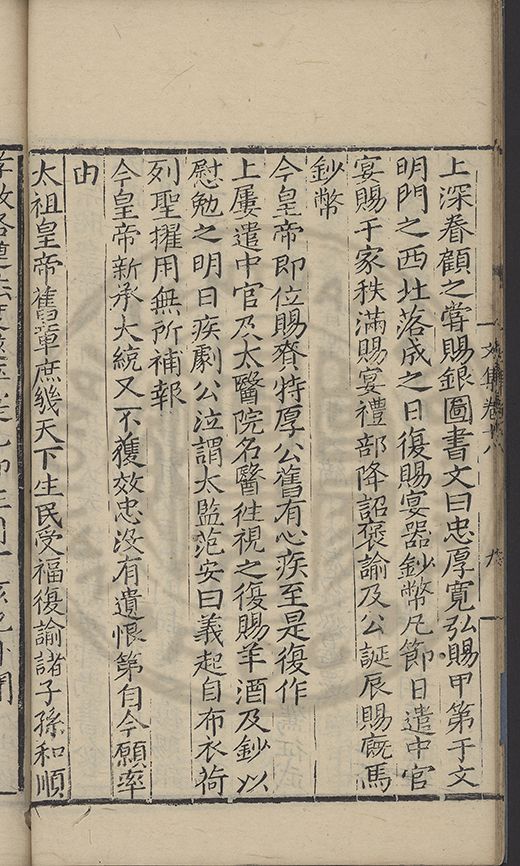 上深眷顧之甞賜銀圖書文曰忠厚寬弘賜甲第于文
明門之西北落成之日復賜宴器鈔幣凡節日遣中官
宴賜于家秩滿賜宴禮部降詔褒諭及公誕辰賜廐馬
鈔幣
今皇帝即位賜賚特厚公舊有心疾至是復作
上屢遣中官及太醫院名醫徃視之復賜羊酒及鈔以
慰勉之明日疾劇公泣謂太監范安曰義起自布衣荷
列聖擢用無所補報
今皇帝新承大統又不獲效忠沒有遺恨第自今願率
由
太祖皇帝舊章庶幾天下生民受福復諭諸子孫和順